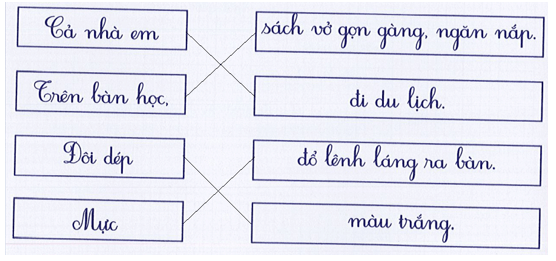 Cả nhà em
sách vở gọn gàng, ngăn nắp.
Trên bàn học,
đi du lịch.
Đôi dép
đổ lênh láng ra bàn.
Mực
màu trắng.